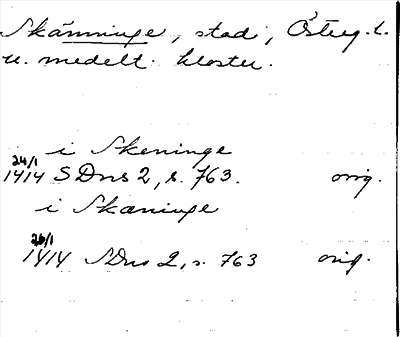 Skänninge, stad, Österg. l.
u. medelt. kloster.
i Skeninge
24/1
1414 SDns 2, s. 763. orig.
i Skæninge
26/1
1414 SDns 2, s. 763 orig.